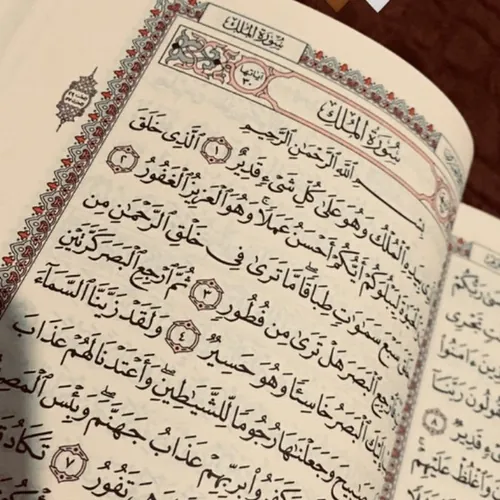 سُورَةُ المُلْكِ
سُورَةُ المُلْكِ
آيَاتُهَا ٣٠
بِسْمِ ٱللَّهِ ٱلرَّحْمَٰنِ ٱلرَّحِيمِ
بِيَدِهِ ٱلْمُلْكُ وَهُوَ عَلَىٰ كُلِّ شَىْءٍ قَدِيرٌ ١ ٱلَّذِى خَلَقَ
لِيَبْلُوَكُمْ أَيُّكُمْ أَحْسَنُ عَمَلًا ۚ وَهُوَ ٱلْعَزِيزُ ٱلْغَفُورُ ٢
سَبْعَ سَمَٰوَٰتٍ طِبَاقًا ۖ مَّا تَرَىٰ فِى خَلْقِ ٱلرَّحْمَٰنِ مِن
ٱلْبَصَرَ هَلْ تَرَىٰ مِن فُطُورٍ ٣ ثُمَّ ٱرْجِعِ ٱلْبَصَرَ كَرَّتَيْنِ
إِلَيْكَ ٱلْبَصَرُ خَاسِئًا وَهُوَ حَسِيرٌ ٤ وَلَقَدْ زَيَّنَّا ٱلسَّمَآءَ
وَجَعَلْنَٰهَا رُجُومًا لِّلشَّيَٰطِينِ ۖ وَأَعْتَدْنَا لَهُمْ عَذَابَ
بِرَبِّهِمْ عَذَابُ جَهَنَّمَ ۖ وَبِئْسَ
تَفُورُ ٧ تَكَادُ
رَبُّكُمْ
تَجْرِى
ءَامَنُوا۟
رَبَّنَآ
قَدِيرٌ ٨
وَٱغْلُظْ عَلَيْهِمْ